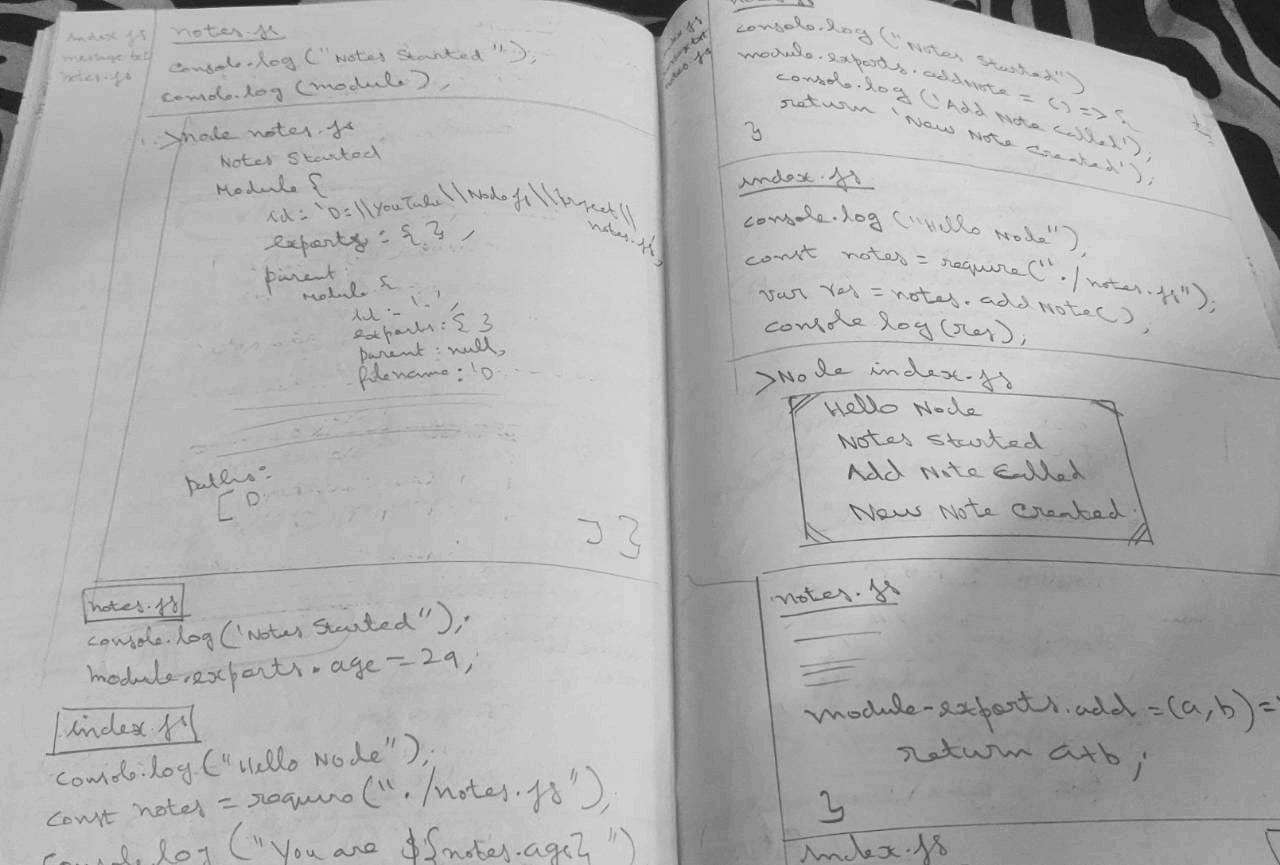 index.js
message.txt
notes.js
notes.js
console.log ("Notes Started");
console.log (module);
>node notes.js
Notes Started
Module {
id: 'D:\\YouTube\\Nodejs\\Project\\
notes.js,
exports: { },
parent:
Module {
id: '.',
exports: { }
parent: null,
filename: 'D
paths:
[ D
] }
notes.js
console.log ('Notes Started");
module.exports.age = 29;
index.js
console.log ("Hello Node");
const notes = require("./notes.js");
console.log ("You are ${notes.age} ")
index.js
message.txt
notes.js
notes.js
console.log ("Notes Started")
module.exports.addNote = () => {
console.log ('Add Note Called');
return 'New Note Created');
}
index.js
console.log ("Hello Node");
const notes = require("./notes.js");
var res = notes.addNote();
console log (res);
>Node index.js
Hello Node
Notes Started
Add Note Called
New Note Created.
notes.js
module.exports.add = (a, b) =
return a+b ;
}
index.js